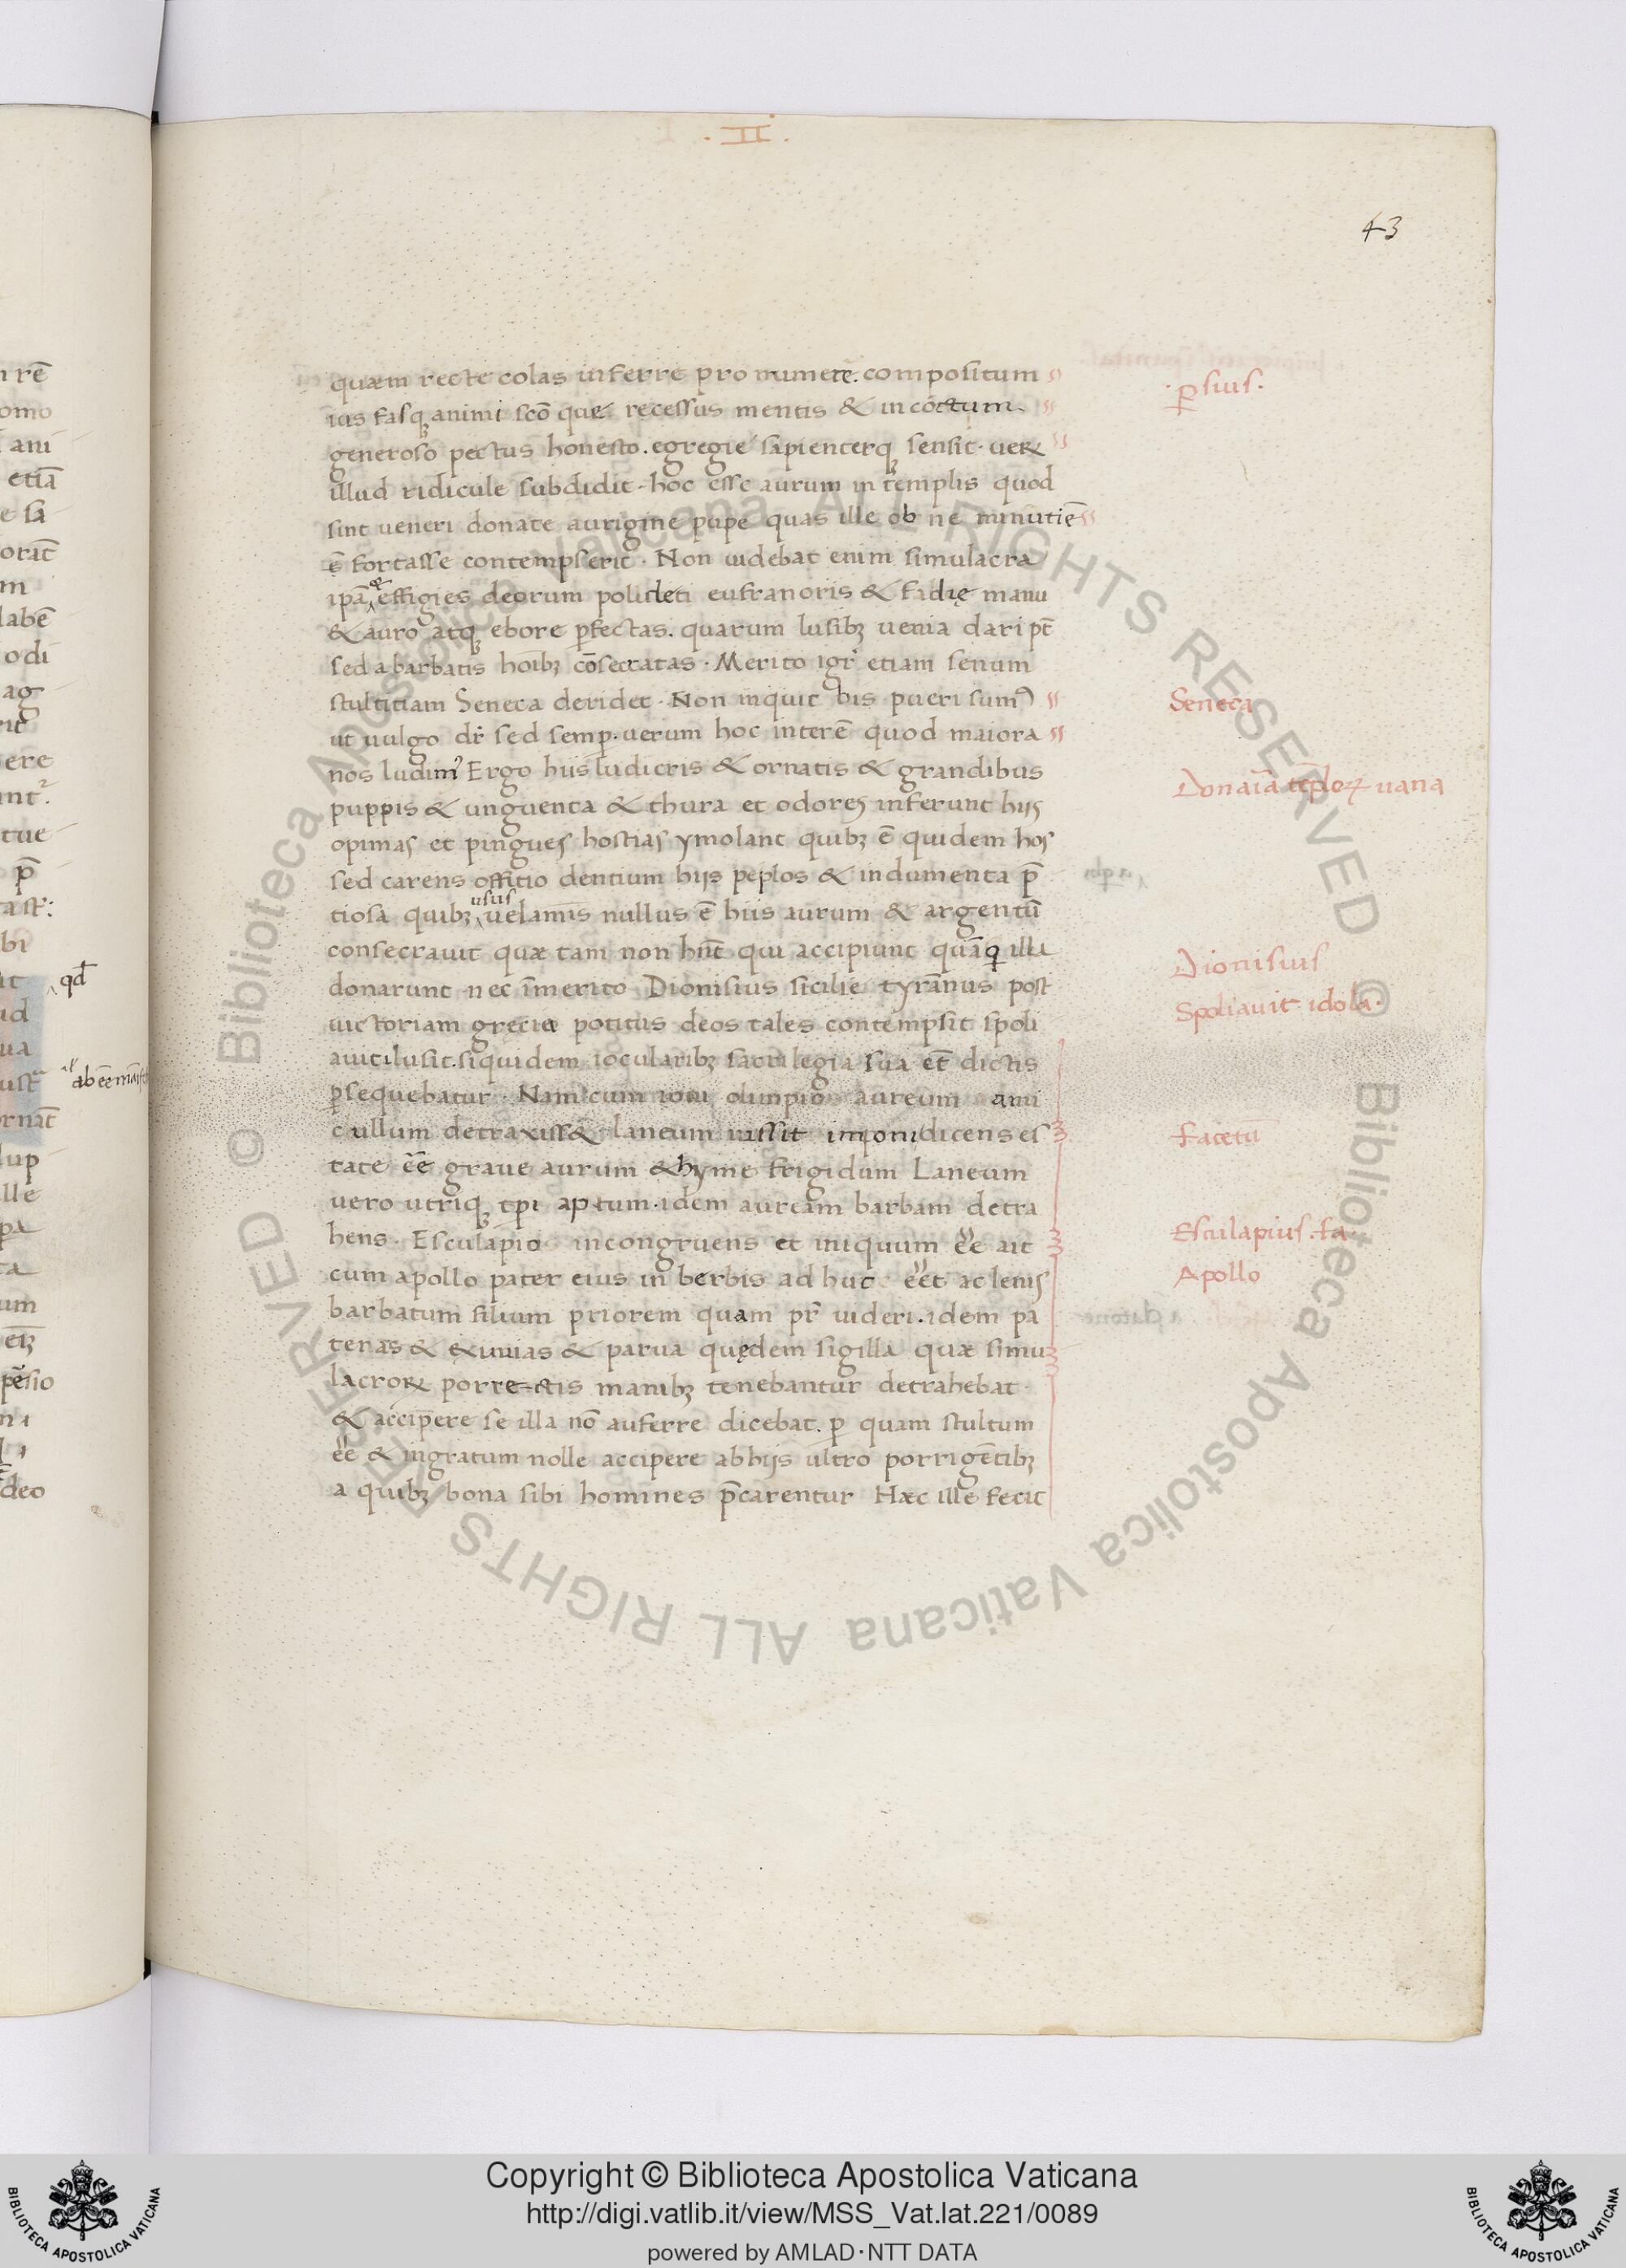 .II.
43
quæm recte colas inferre pro numere. compositum
ius fasqꝫ animi scō que recessus mentis & incoctum.
generoso pectus honesto. egregie sapienterqꝫ sensit. ueꝝ
illud ridicule subdidit. hoc esse aurum in templis quod
sint ueneri donate a uirgine pupe quas ille ob ne minutiē
ę fortasse contempserit. Non uidebat enim simulacra
ipā effigies deorum policleti eufranoris & fidię manu
& auro atqꝫ ebore ꝑfectas. quarum lusibꝫ uenia dari pt̄
sed a barbatis hoībꝫ cōsecratas. Merito igr̄ etiam senum
stultitiam Seneca deridet. Non inquit bis pueri sumꝰ
ut uulgo dr̄ sed semꝑ. uerum hoc interē quod maiora
nos ludimꝰ Ergo hiis ludicris & ornatis & grandibus
puppis & unguenta & thura et odores inferunt hijs
opimas et pingues hostias ymolant quibꝫ ē quidem hos
sed carens offitio dentium hijs peplos & indumenta p̄
tiosa quibꝫ usus uelamis nullus ē hiis aurum & argentū
consecrauit quæ tam non hn̄t qui accipiunt quā qi illa
donarunt nec īmerito Dionisius sicilie tyrānus post
uictoriam greciæ potitus deos tales contempsit spoli
auit ilusit. siquidem iocularibꝫ sacrilegia sua et̄ dictis
ꝑsequebatur. Nam cum ioui olimpio aureum ami
cullum detraxiss& laneum iussit imponi dicens es
tate ēe graue aurum & hyme frigidum Laneum
uero utriqꝫ tp̄i aptum. idem auream barbam detra
hens. Esculapio incongruens et iniquum ēe ait
cum apollo pater eius in berbis ad huc ēet ac lenis
barbatum filium priorem quam pr̄ uideri. idem pa
tenas & exuuias & parua quędem sigilla quæ simu
lacroꝝ porrectis manibꝫ tenebantur detrahebat.
& accipere se illa nō auferre dicebat. ꝑ quam stultum
ēe & ingratum nolle accipere ab hijs ultro porrigētibꝫ
a quibꝫ bona sibi homines p̄carentur Hæc ille fecit
ꝑsius.
Seneca
Donaīa tēpleoꝝ uana
Dionisius
Spoliauit idola.
faceta
Esculapius. fa.
Apollo
Copyright © Biblioteca Apostolica Vaticana
http://digi.vatlib.it/view/MSS_Vat.lat.221/0089
powered by AMLAD·NTT DATA
BIBLIOTECA APOSTOLICA VATICANA
BIBLIOTECA APOSTOLICA VATICANA
© Biblioteca Apostolica Vaticana ALL RIGHTS RESERVED
© Biblioteca Apostolica Vaticana ALL RIGHTS RESERVED